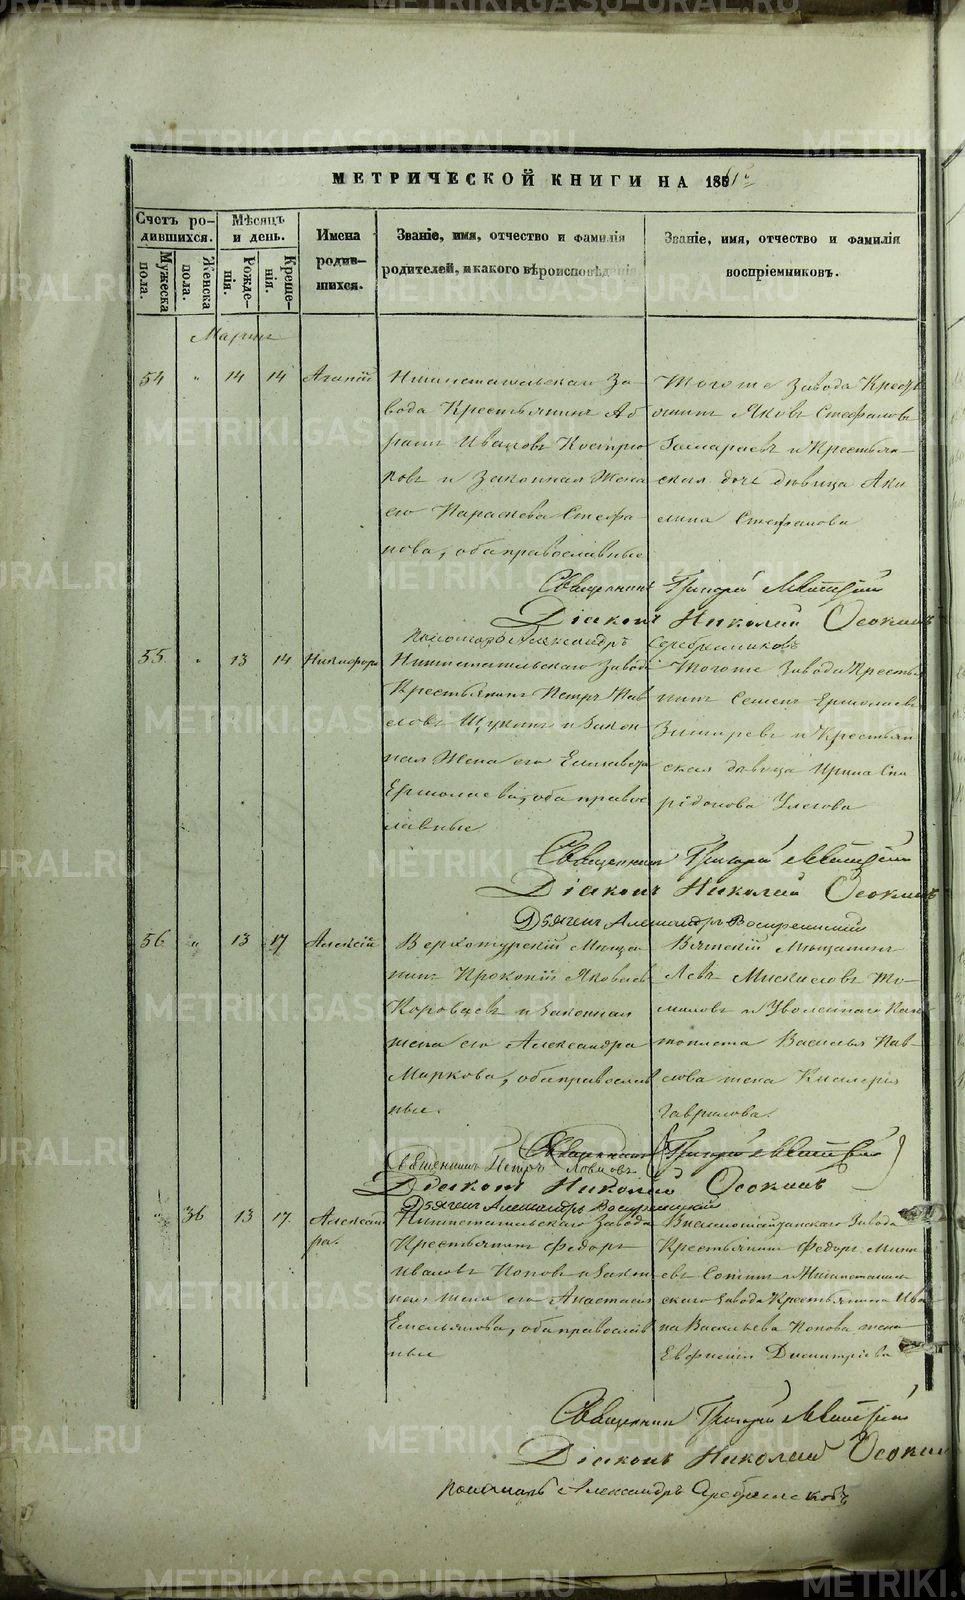 METRIKI.GASO-URAL.RU
МЕТРИЧЕСКОЙ КНИГИ НА 1861 г
Счетъ родившихся.
Мѣсяцъ и день.
Имена родившихся.
Званіе, имя, отчество и фамилія родителей, и какого вѣроисповѣданія
Званіе, имя, отчество и фамилія воспріемниковъ.
Мужеска пола.
Женска пола.
Рожденія.
Крещенія.
Мартъ
54 " 14 14 Агапій
Нижнетагильскаго За-
вода Крестьянинъ
Ивановъ
и Законная Жена
его Параскева Стефа-
нова, оба православные
Тогоже Завода Крес
Яковъ Стефановъ
и Крестьян-
ская дочь дѣвица Аки
лина Стефанова
Священникъ Григорій
Діаконъ Николай Осокинъ
Пономарь Александръ Серебренниковъ
55 " 13 14 Никифоръ
Нижнетагильскаго Завода
Крестьянинъ Петръ Пав
ловъ Щукинъ и Закон
ная Жена его Елисавета
Ермолаева, оба правос
лавные
Тогоже Завода Кресть
нинъ Семенъ Ермолаевъ
и Крестьян
ская дѣвица Ирина Спи
рідонова
Священникъ Григорій
Діаконъ Николай Осокинъ
Дьячекъ Александръ Воскресенскій
56 " 13 17 Алексій
Верхотурскій Мѣща
нинъ Прокопій Яковлевъ
и Законная
жена его Александра
Маркова, оба православ
ные.
Вятскій Мѣщанинъ
Левъ
и Уволеннаго Кан
тониста Василья Пав-
лова жена
Гаврилова.
Священникъ Григорій
Священникъ Петръ Ловцовъ
Діаконъ Николай Осокинъ
Дьячекъ Александръ Воскресенскій
" 36 13 17 Александ
ра.
Нижнетагильскаго Завода
Крестьянинъ Федоръ
Ивановъ Поповъ и Закон
ная жена его Анастасія
Емельянова, оба православ
ные
Завода
Крестьянинъ Федоръ Мина
евъ и Нижнетагиль
скаго Завода Крестьянина Ива
на Васильева Попова жена
Евфимія Димитріева
Священникъ Григорій
Діаконъ Николай Осокинъ
Пономарь Александръ Серебренниковъ